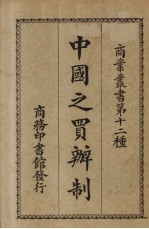 商業叢書第十二種
中國之買辦制
商務印書館發行